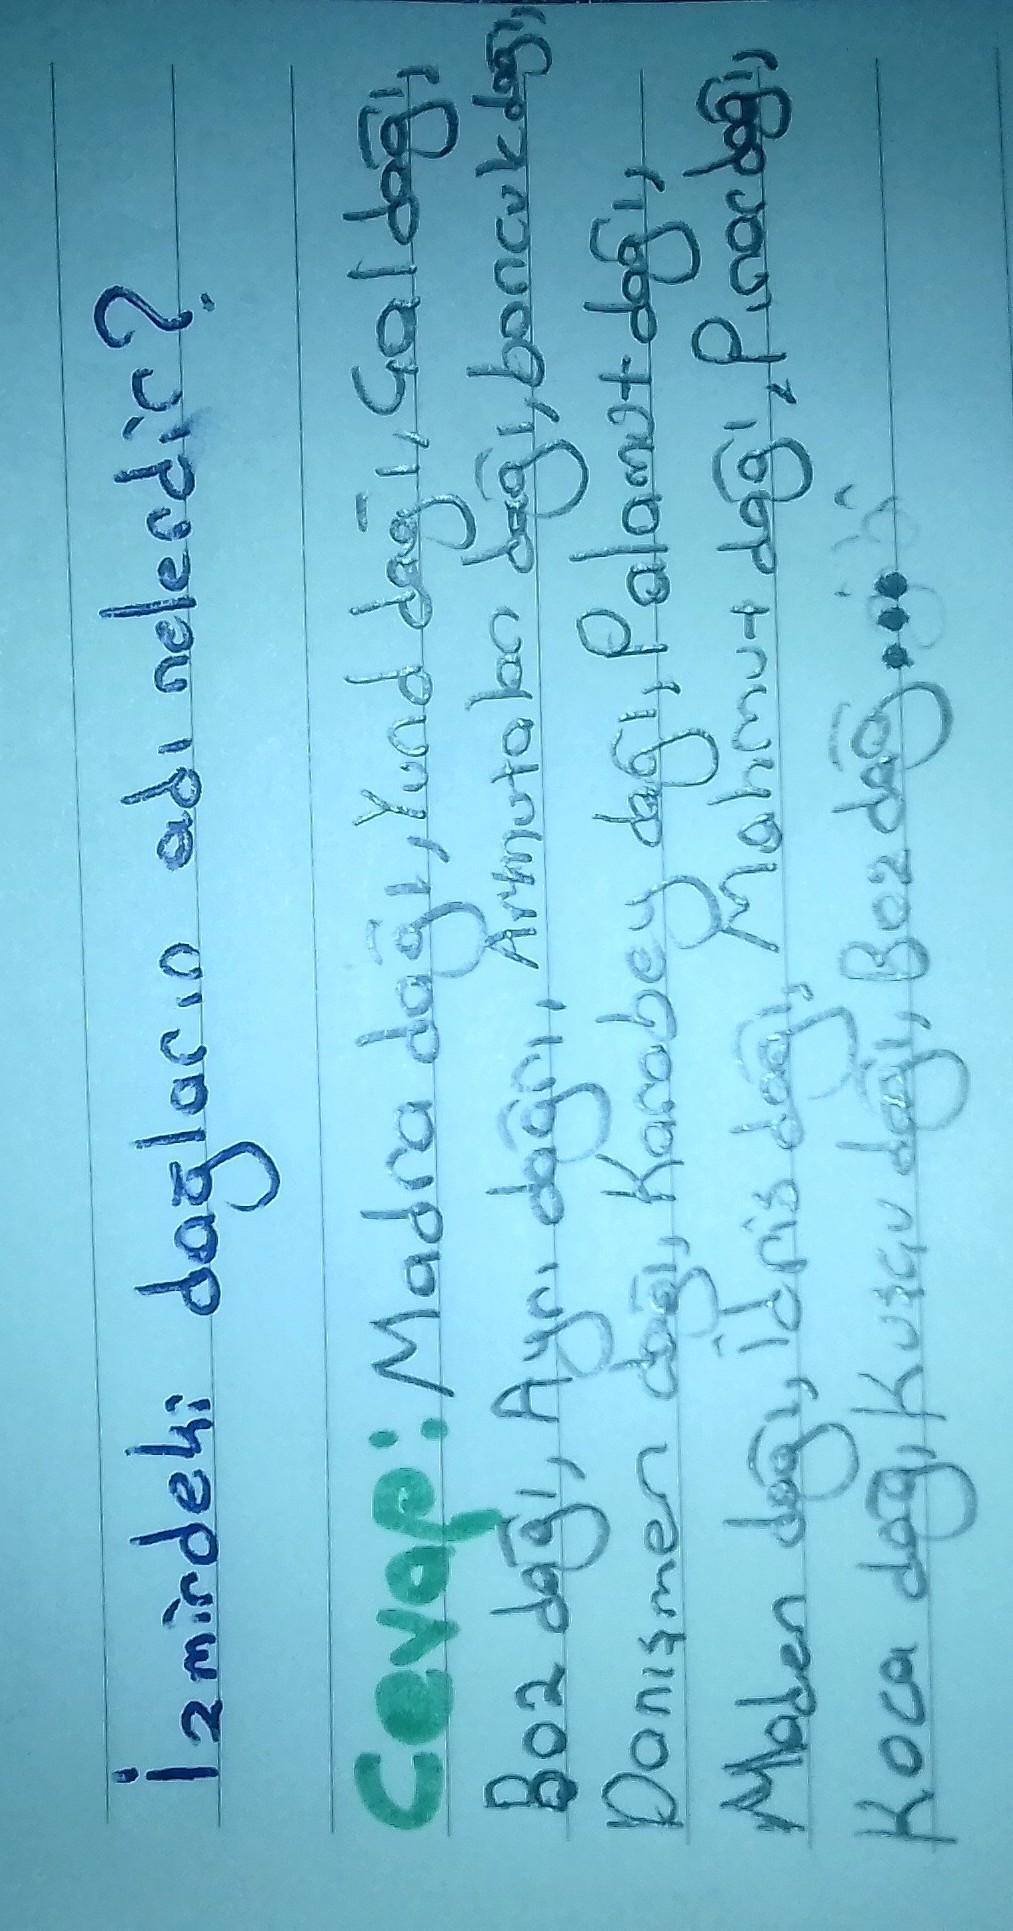 İzmirdeki dağların adı nelerdir?
Cevap: Madra dağı, Yund dağı, Çal dağı,
Boz dağı, Aynı dağrı, Armutalan dağı, boncuk dağı,
Danişmen dağı, Karabey dağı, Palamut dağı,
Maden dağı, idris dağı, Mahmut dğı, Pınar dağı,
Koca dağ, Kuşçu dağı, Boz dağ...